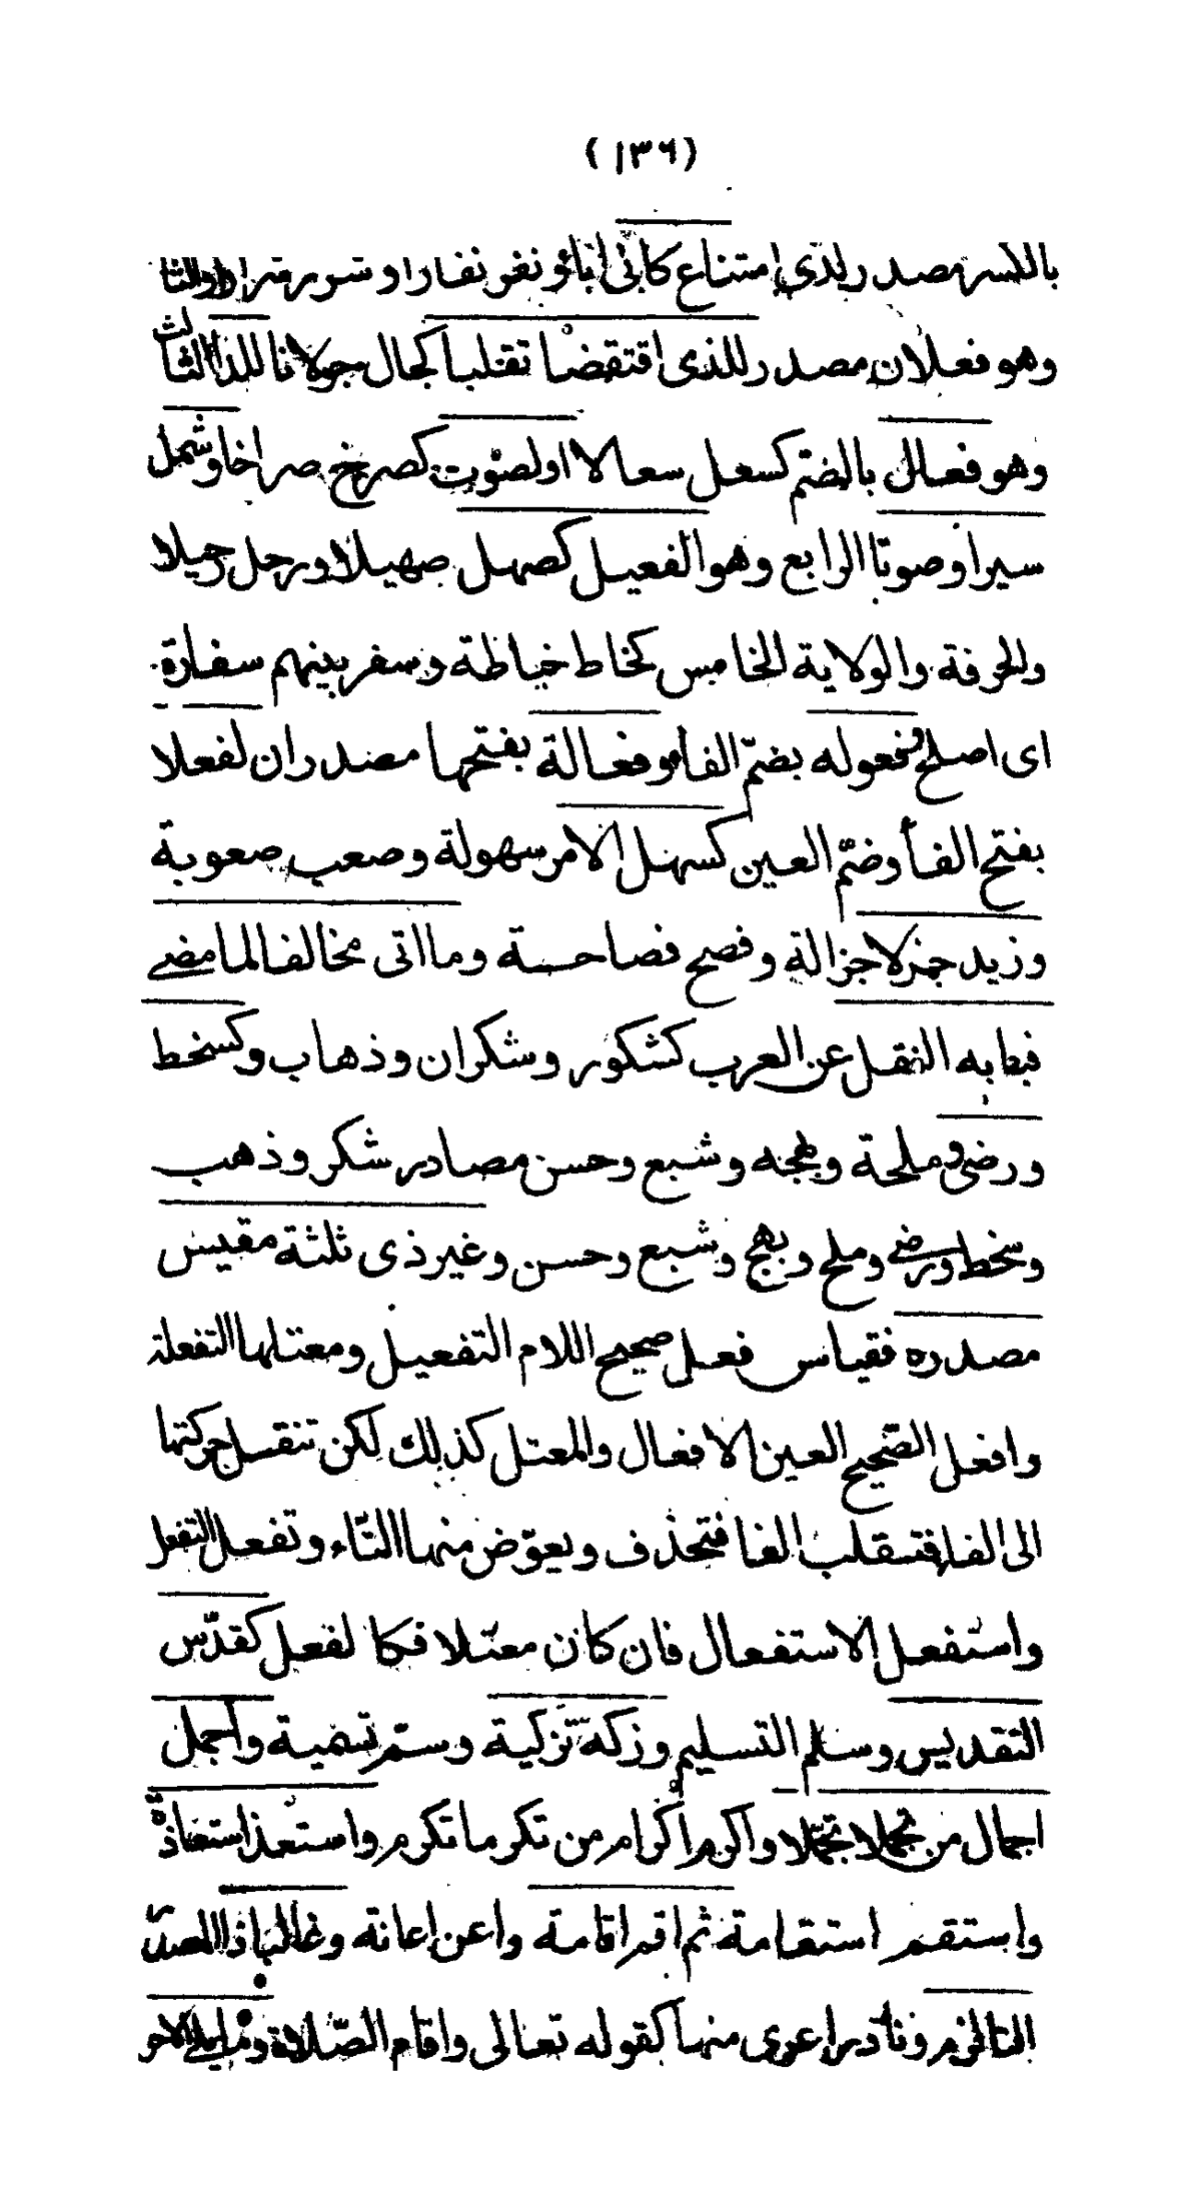 (١٣٦)
بالكسر مصدر لذى امتناع كابى اباءً ونفر نفارا وشرد شرادا والثا
وهو فعلان مصدر للذى اقتضا تقلبا كجال جولانا للدا الثالث
وهو فعال بالضم كسعل سعالا او لصوت كصرخ صراخا وشمل
سيرا وصوتا الرابع وهو الفعيل كصهل صهيلا ورحل رحيلا
وللحرفة والولاية الخامس كخاط خياطة وسفر بينهم سفارة
اى اصلح فعوله بضمّ الفا وفعالة بفتحها مصدران لفعلا
بفتح الفأ وضمّ العين كسهل الامر سهولة وصعب صعوبة
وزيد جزلا جزالة وفصح فصاحة وما اتى مخالفا لما مضى
فبابه النقل عن العرب كشكور وشكران وذهاب وكسخط
ورضى وملحة وبهجه وشبع وحسن مصادر شكر وذهب
وسخط ورضى وملح وبهج وشبع وحسن وغير ذى ثلثة مقيس
مصدره فقياس فعل صحيح اللام التفعيل ومعتلها التفعلة
وافعل الصّحيح العين الافعال والمعتل كذلك لكن تنقل حركتها
الى الفا فتنقلب الفا فتحذف ويعوّض منها التّاء وتفعل التفعل
واستفعل الاستفعال فان كان معتلا فكا لفعل كقدّس
التقديس وسلم التسليم وزكه تزكية وسمّ تسمية واجمل
اجمال من تجملا تجمّلا واكرم اكرام من تكرما تكرم واستعذ استعاذة
واستقم استقامة ثم اقم اقامة واعن اعانة وغالبا ذا المصدر
التا لزم ونادرا عرى منها كقوله تعالى واقام الصّلاة وما يلى الاخر